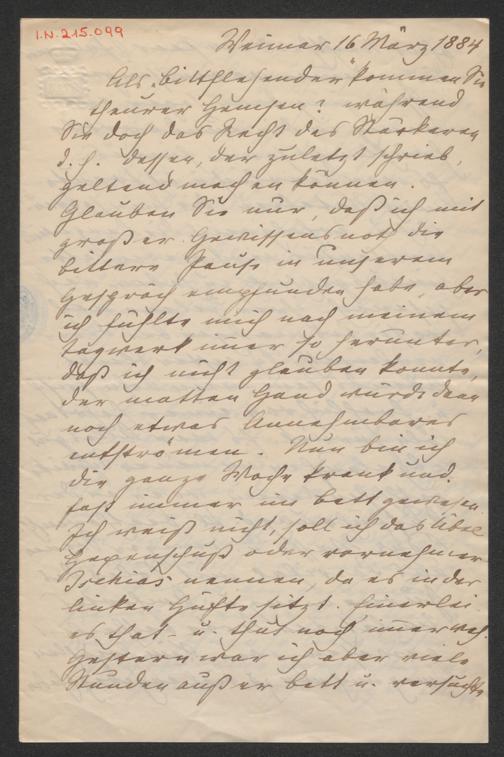 I.N. 215.099
Weimar 16 März 1884
Als „bittflehender" kommen Sie
theurer Hemsen? während
Sie doch das Recht des Stärkeren
d. h. dessen, der zuletzt schrieb,
geltend machen können.
Glauben Sie nur, daß ich mit
großer Gewissensnot die
bittere Pause in unserem
Gespräch empfunden habe, aber
ich fühlte mich nach meinem
Tagwerk immer so herunter,
daß ich nicht glauben konnte,
der matten Hand würde denn
noch etwas Annehmbares
entströmen. Nun bin ich
die ganze Woche krank und
fast immer im Bett gewesen.
Ich weiß nicht, soll ich das Übel
Hexenschuß oder vornehmer
Ischias nennen, da es in der
linken Hüfte sitzt. Einerlei
es that - u. thut noch immer weh.
Gestern war ich aber viele
Stunden außer Bett u. versuchte